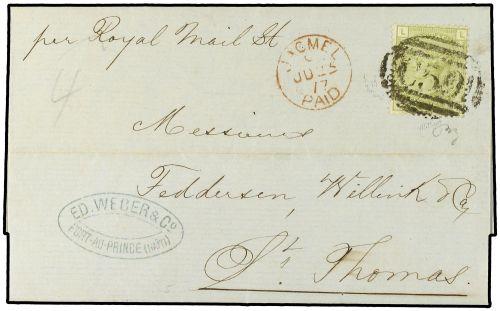 per Royal Mail St
JACMEL
C
JU
77
PAID
L
Messieurs
Feddersen, Willink & Cy
St. Thomas.
ED. WEBER & Co
PORT-AU-PRINCE (HAITI)
4